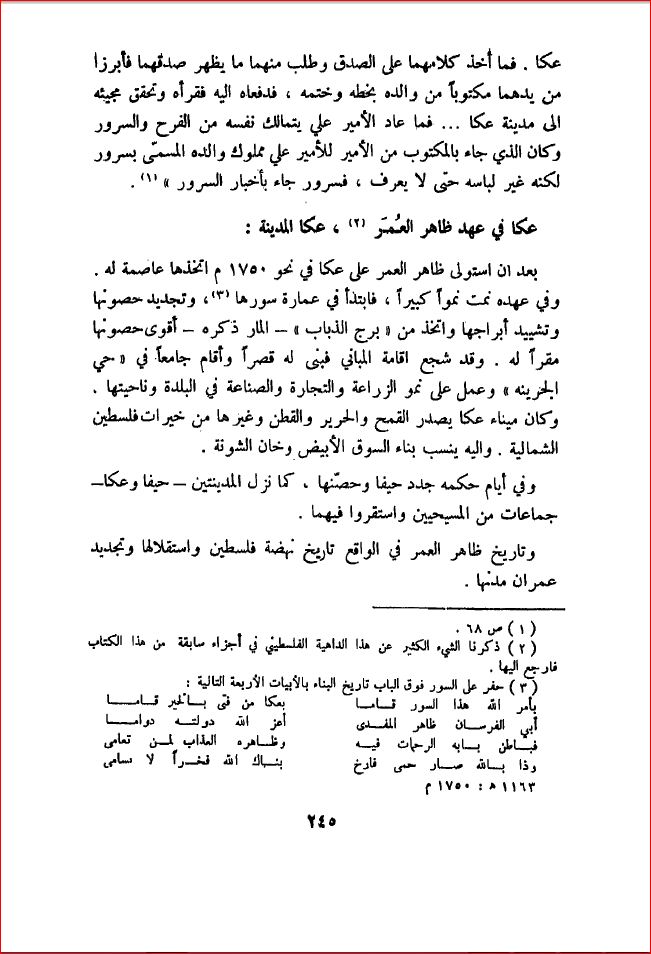 عكا . فما أخذ كلامهما على الصدق وطلب منهما ما يظهر صدقهما فأبرزا
من يدهما مكتوباً من والده بخطه وختمه ، فدفعاه اليه فقرأه وتحقق مجيئه
الى مدينة عكا ... فما عاد الأمير علي يتمالك نفسه من الفرح والسرور
وكان الذي جاء بالمكتوب من الأمير للأمير علي مملوك والده المسمّى بسرور
لكنه غير لباسه حتى لا يعرف ، فسرور جاء بأخبار السرور » (١) .
عكا في عهد ظاهر العُمَر (٢) ، عكا المدينة :
بعد ان استولى ظاهر العمر على عكا في نحو ١٧٥٠ م اتخذها عاصمة له .
وفي عهده نمت نمواً كبيراً ، فابتدأ في عمارة سورها (٣) ، وتجديد حصونها
وتشييد أبراجها واتخذ من « برج الذباب » – المار ذكره – أقوى حصونها
مقراً له . وقد شجع اقامة المباني فبنى له قصراً وأقام جامعاً في « حي
الجرينه » وعمل على نمو الزراعة والتجارة والصناعة في البلدة وناحيتها .
وكان ميناء عكا يصدر القمح والحرير والقطن وغيرها من خيرات فلسطين
الشمالية . واليه ينسب بناء السوق الأبيض وخان الشونة .
وفي أيام حكمه جدد حيفا وحصّنها ، كما نزل المدينتين – حيفا وعكا –
جماعات من المسيحيين واستقروا فيهما .
وتاريخ ظاهر العمر في الواقع تاريخ نهضة فلسطين واستقلالها وتجديد
عمران مدنها .
(١) ص ٦٨ .
(٢) ذكرنا الشيء الكثير عن هذا الداهية الفلسطيني في أجزاء سابقة من هذا الكتاب
فارجع اليها .
(٣) حفر على السور فوق الباب تاريخ البناء بالأبيات الأربعة التالية :
بأمر الله هذا السور قاما بعكا من فتى بالخير قاما
أبي الفرسان ظاهر المفدى أعز الله دولته دواما
فباطن بابه الرحمات فيه وظاهره العذاب لمن تعامى
وذا بالله صار حمى فارخ بناك الله فخراً لا يسامى
١١٦٣ ه : ١٧٥٠ م
٢٤٥